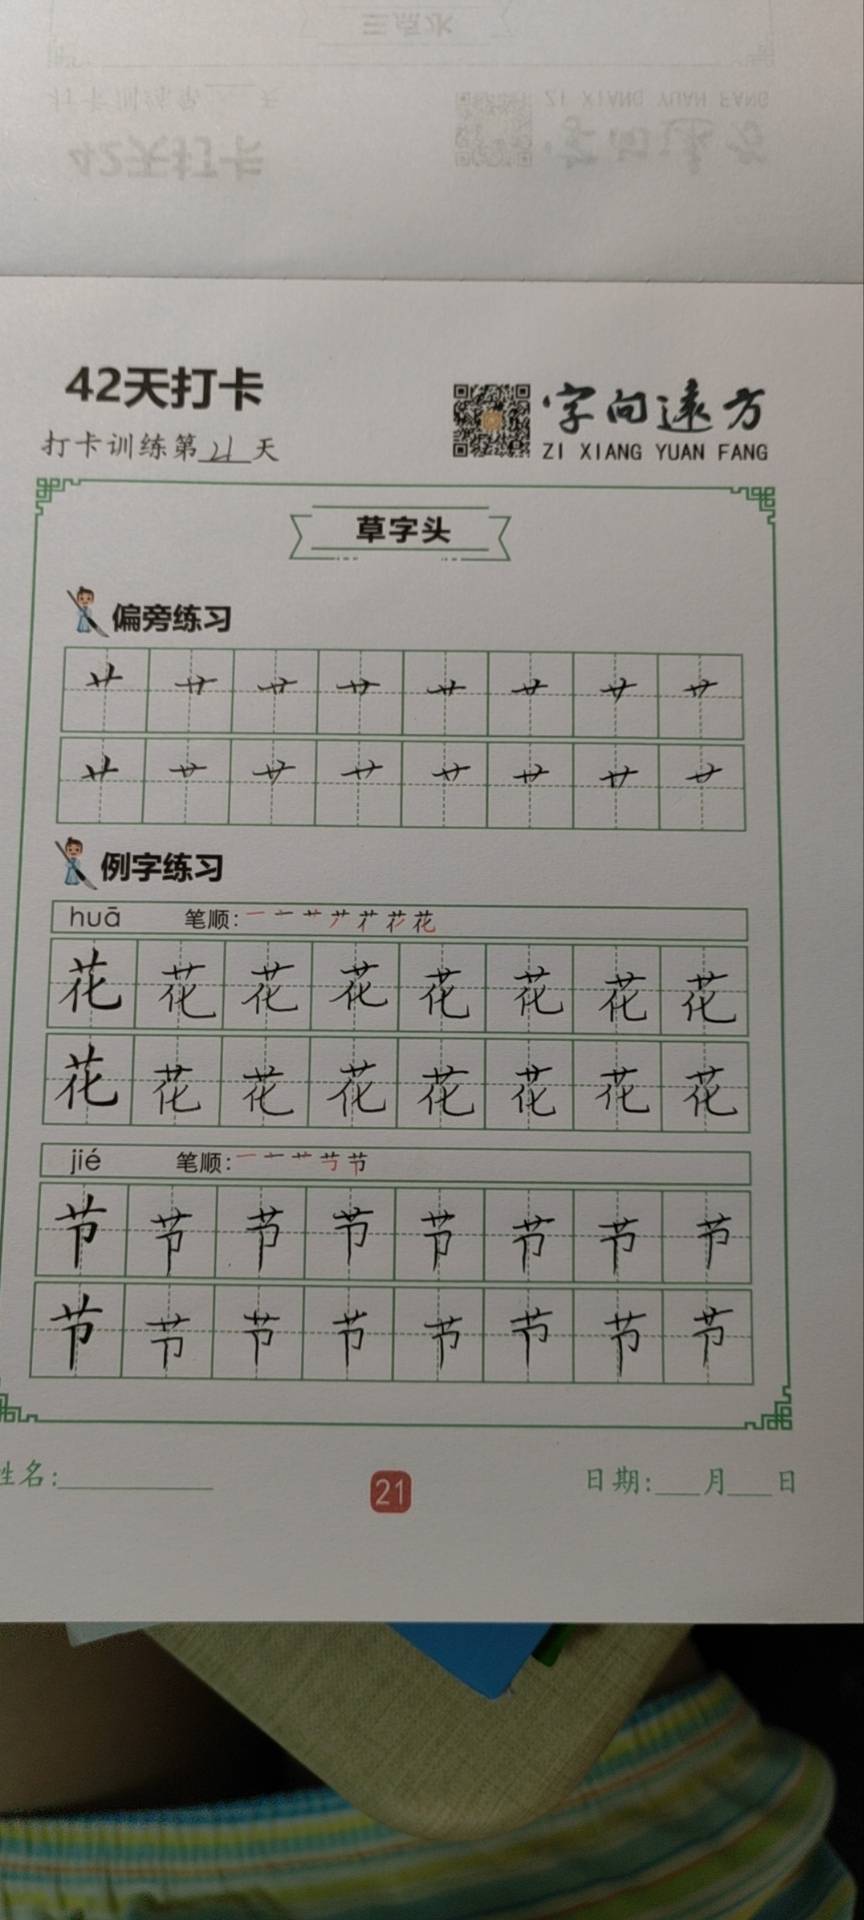 42天打卡
字向远方
打卡训练第21天
ZI XIANG YUAN FANG
草字头
偏旁练习
艹 艹 艹 艹 艹 艹 艹 艹
艹 艹 艹 艹 艹 艹 艹 艹
例字练习
huā 笔顺: 花
花 花 花 花 花 花 花 花
花 花 花 花 花 花 花 花
jié 笔顺: 节
节 节 节 节 节 节 节 节
节 节 节 节 节 节 节 节
姓名:
21
日期: 月 日